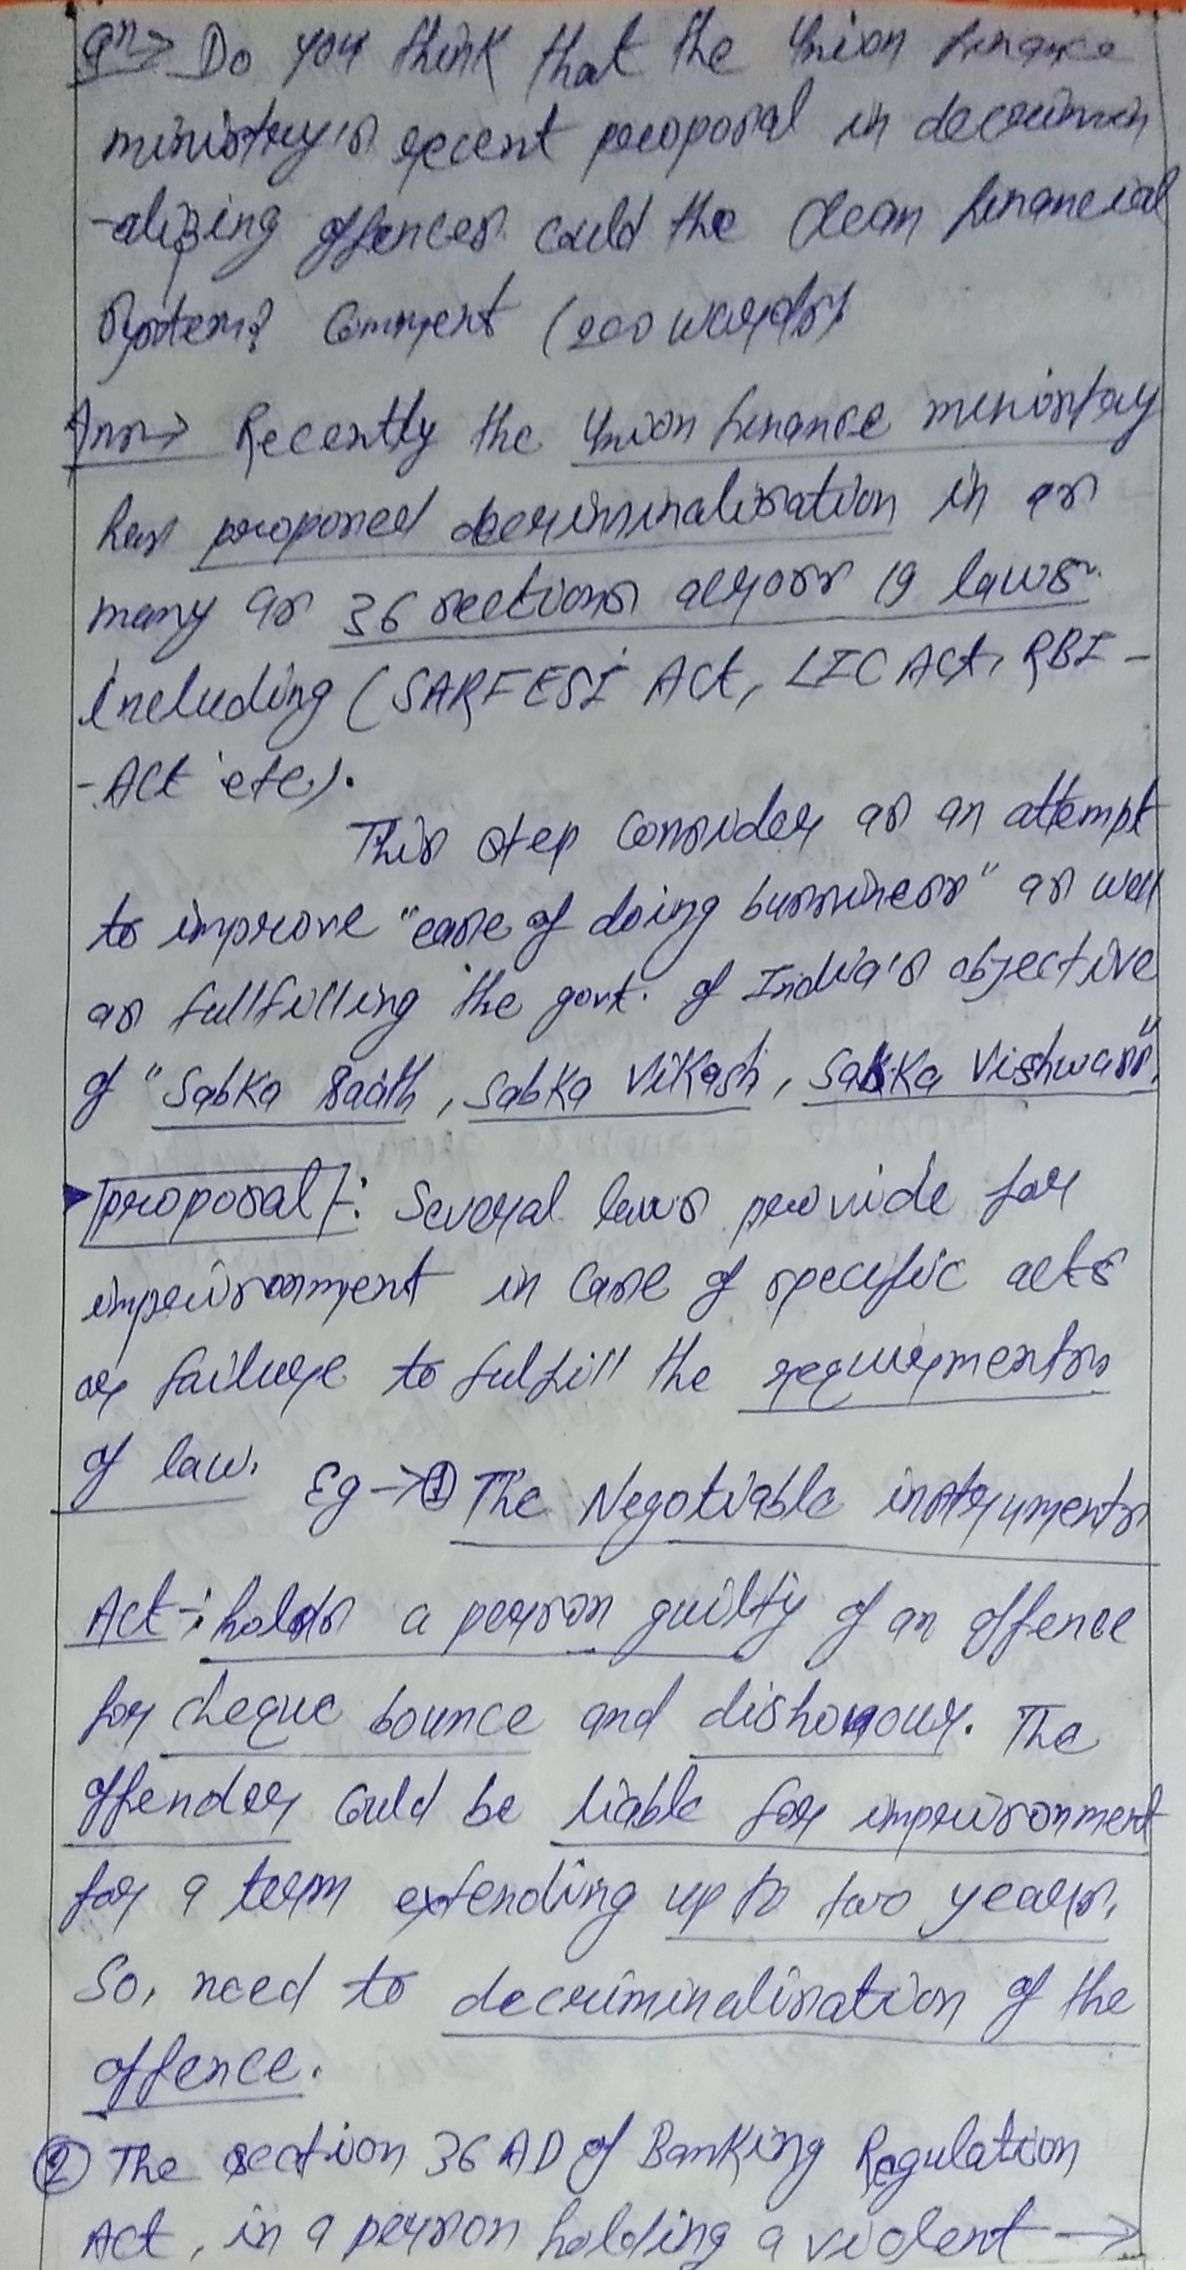 Qn→ Do you think that the Union finance
ministry's recent proposal in decrimin
-alizing offences could the clean financial
System? Comment (200 words)
Ans→ Recently the Union finance ministry
has proposed decriminalisation in as
many as 36 sections across 19 laws
including (SARFESI Act, LIC Act, RBI -
- Act etc).
This step consider as an attempt
to improve "ease of doing bussiness" as well
as fullfilling the govt. of India's objective
of "Sabka Saath, Sabka Vikash, Sabka Vishwass".
Proposal :- Several laws provide for
imprisonment in case of specific acts
or failure to fulfill the requirments
of law. Eg → ① The Negotiable instruments
Act -: holds a person guilty of an offence
for cheque bounce and dishonour. The
offender could be liable for imprisonment
for a term extending up to two years.
So, need to decriminalisation of the
offence.
② The section 36 AD of Banking Regulation
Act, in a person holding a violent →